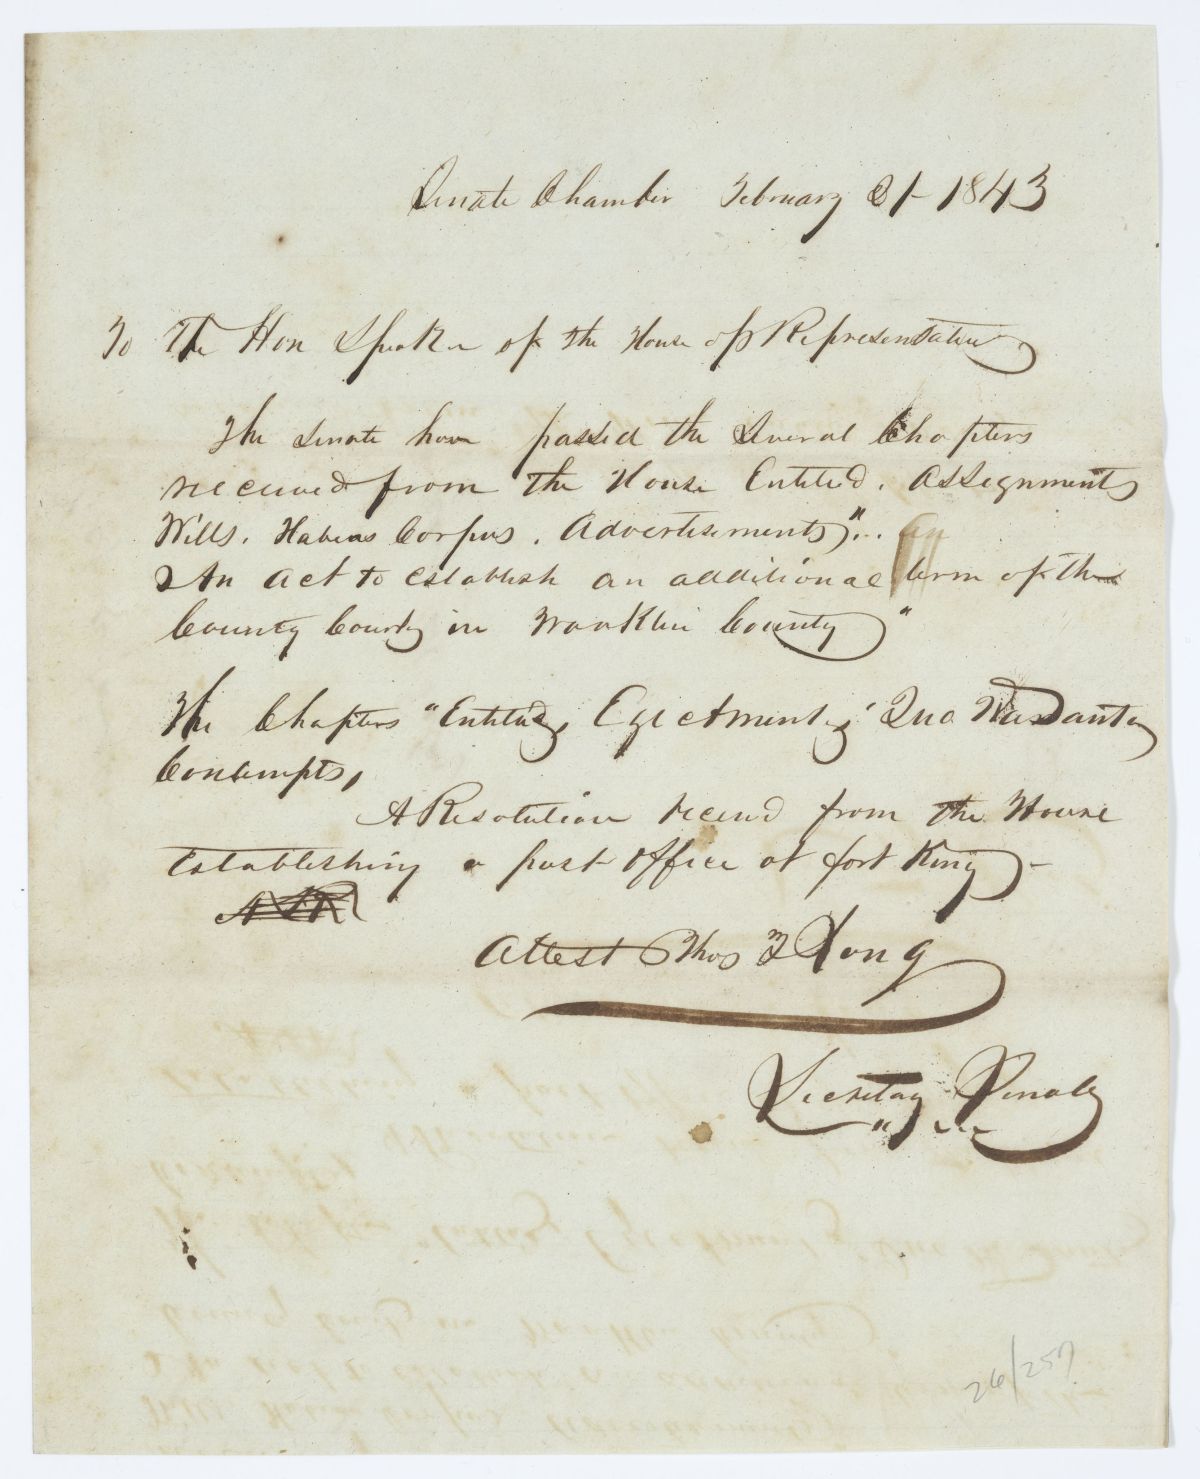 Senate Chamber February 21- 1843
To The Hon Speaker of the House of Representatives
The Senate have passed the Several Chapters
received from the House Entitled. Assignments
Wills. Habeas Corpus. Advertisements" ... an
An act to establish an additional term of the
County Courts in Franklin County"
The Chapters "Entitled, Ejectments, Quo Warranto
Contempts,
A Resolution recend from the House
Establishing a post office at fort King -
Attest Thos T Long
Secretary Senate
26/257